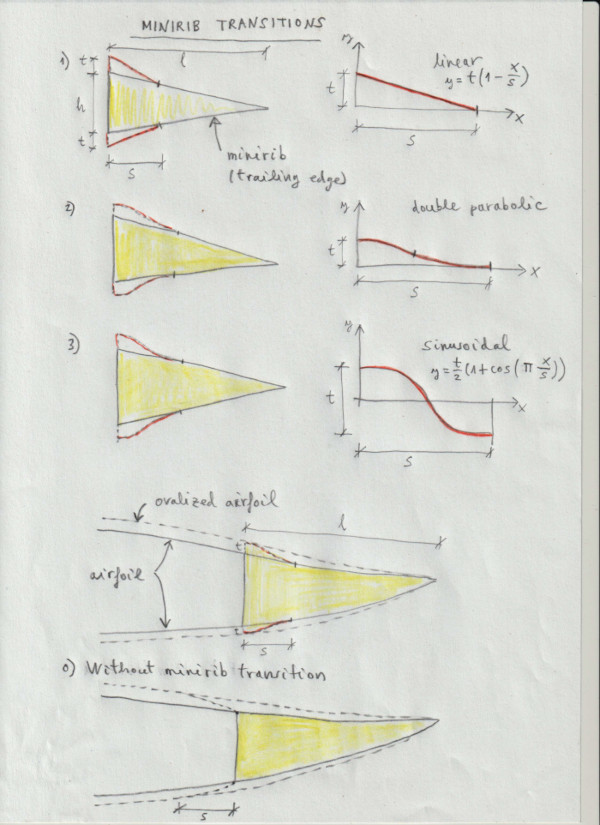 MINIRIB TRANSITIONS
1)
t
l
h
t
s
minirib
(trailing edge)
y
linear
y=t(1-x/s)
t
x
s
2)
y
double parabolic
t
x
s
3)
y
sinusoidal
y=t/2(1+cos(π x/s))
t
x
s
ovalized airfoil
l
t
airfoil
t
s
0) Without minirib transition
s